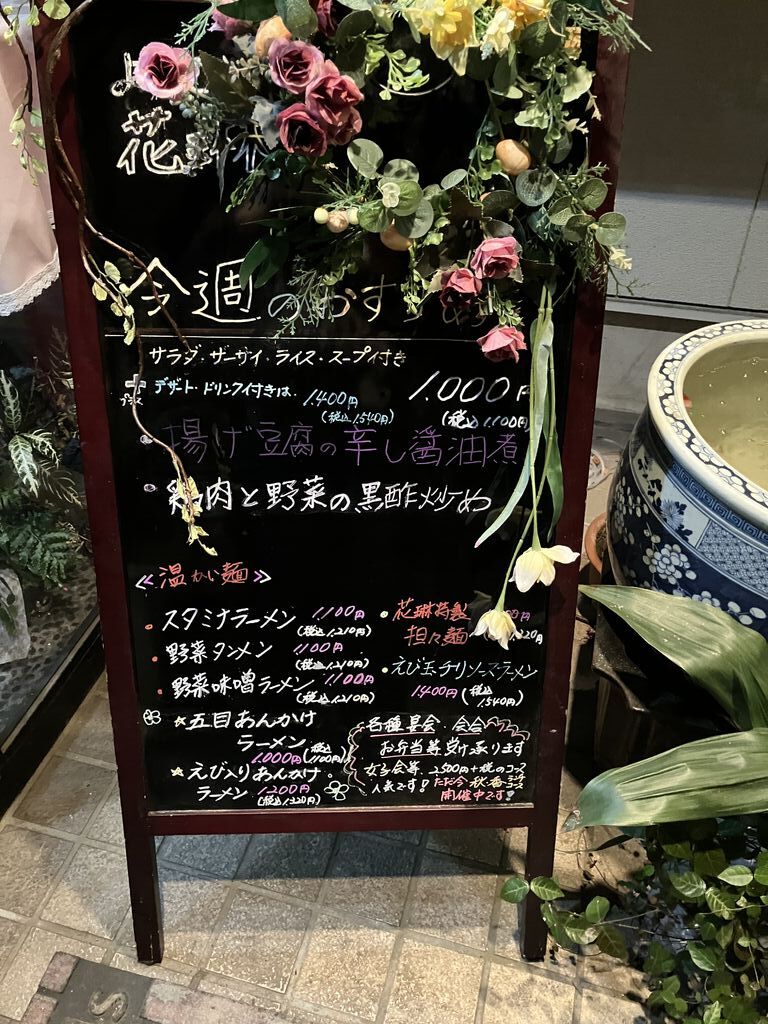 花
今週のおす
サラダ・ザーサイ・ライス・スープ付き
プラス デザート・ドリンク付きは、1,400円 (税込1,540円)
1,000円 (税込1,100円)
揚げ豆腐の辛し醤油煮
鶏肉と野菜の黒酢炒め
≪温かい麺≫
スタミナラーメン 1100円 (税込1,210円)
野菜タンメン 1100円 (税込1,210円)
野菜味噌ラーメン 1100円 (税込1,210円)
☆五目あんかけ
ラーメン 1,000円 (税込1,100円)
☆えび入りあんかけ
ラーメン 1200円 (税込1,320円)
花琳特製
担々麺
えび玉チリソースラーメン
1400円 (税込1,540円)
各種宴会・会合
お弁当等受け承ります
女子会等 2,500円+税のコース
人気です! ただ今 秋香ランチコース
開催中です!
S